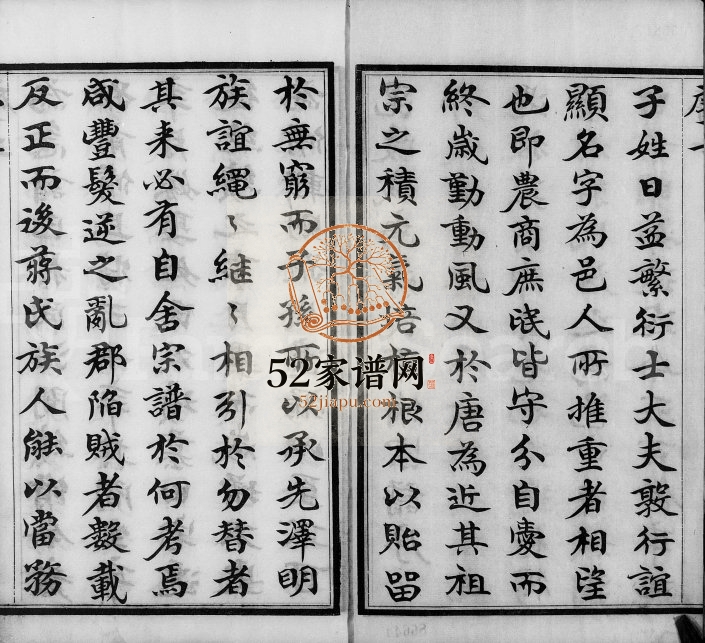 序一
子姓日益繁衍士大夫敦行誼
顯名字為邑人所推重者相望
也即農商庶民皆守分自愛而
終歲勤動風又於唐為近其祖
宗之積元氣培根本以貽留
於無窮而子孫所以承先澤明
族誼繩〻繼〻相引於勿替者
其来必有自舍宗譜於何考焉
咸豐髮逆之亂郡陷賊者數載
反正而後蔣氏族人能以當務
52家谱网
52jiapu.com